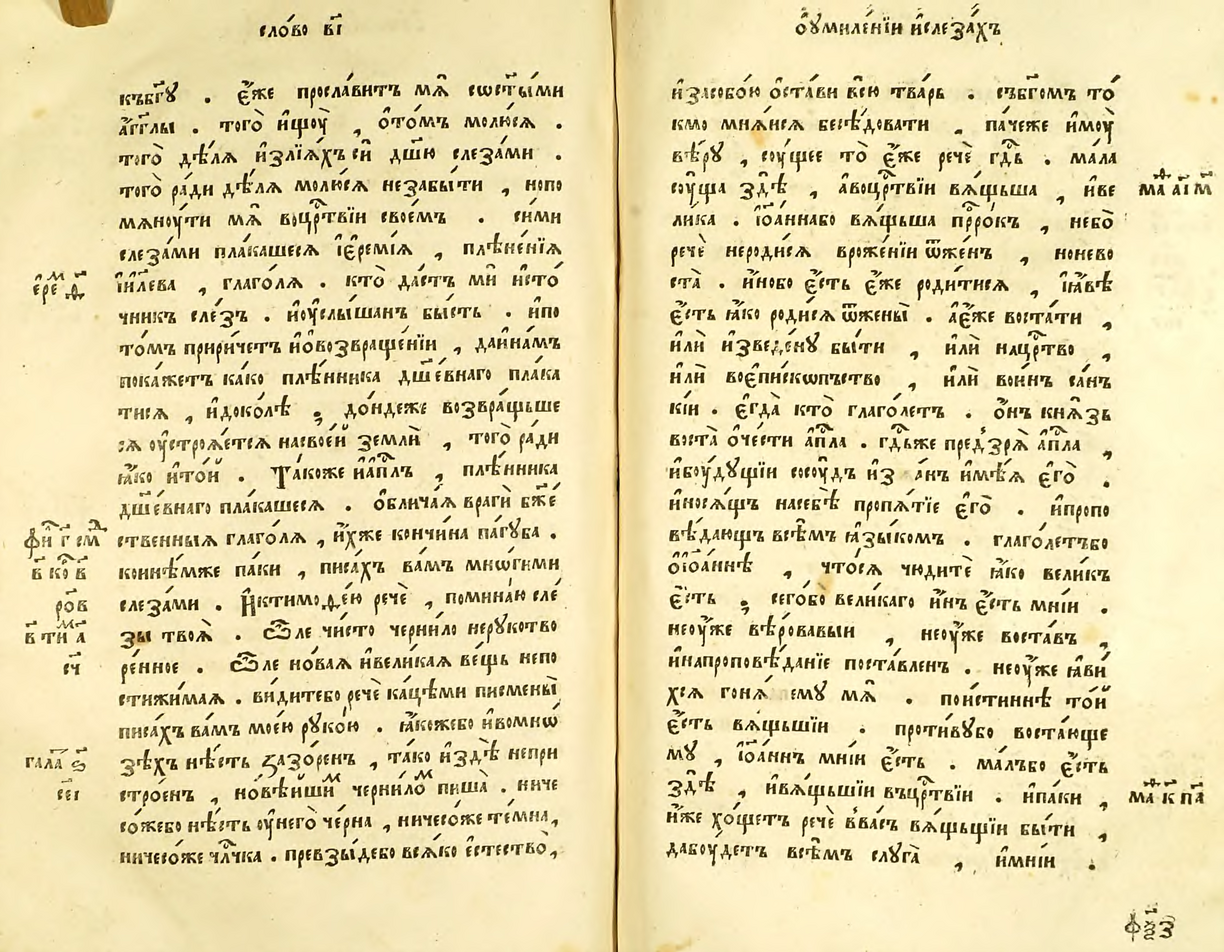 сло́во в҃і
къбг҃ꙋ . є҆́же просла́витъ мѧ̀ сост҃ы́ми
а҆́гг҃лы . того̀ и҆щꙋ̀ , ѻ҆то́мъ молю́сѧ .
того̀ дѣ́лѧ и҆злїѧ́хъ сѝ дш҃ю слеза́ми .
того̀ ра́ди дѣ́лѧ молю́сѧ незабы́ти , нопо
мѧнꙋ́ти мѧ̀ воцр҃твїи свое́мъ . си́ми
слеза́ми пла́кашесѧ і҆єремі́ѧ , плѣне́нїѧ
і҆и҃лева , глаго́лѧ . кто̀ да́стъ мѝ и҆сто́
чникъ сле́зъ . и҆ꙋ҆слы́шанъ бы́сть . и҆по
то́мъ прири́четъ и҆ѡ҆возвраще́нїи , даи҆на́мъ
пока́жетъ ка́ко плѣ́нника дш҃е́внаго пла́ка
тисѧ , и҆доко́лѣ ; до́ндеже возвра́щьше
сѧ ᲂу҆строѧ́етсѧ насвое́й землѝ , того̀ ра́ди
ꙗ҆́ко и҆то́й . Та́коже и҆а҆п҃лъ , плѣ́нника
дш҃е́внаго пла́кашесѧ . ѻ҆блича́ѧ врагѝ бж҃е́
ственныѧ глаго́лѧ , и҆́хже кончи́на па́гꙋба .
коринѣ́мже па́ки , писа́хъ ва́мъ мно́гими
слеза́ми . И҆ктимоѳе́ю речѐ , помина́ю сле
зы̀ твоѧ̀ . Ѽле чи́сто черни́ло нерꙋкотво
ре́нное . Ѽле но́ваѧ и҆вели́каѧ ве́щь непо
стижи́маѧ . ви́дитебо речѐ кацѣ́ми писмены̀
писа́хъ ва́мъ мое́ю рꙋко́ю . ꙗ҆́кожебо и҆вомно́
зѣ́хъ нѣ́сть зазо́ренъ , та́ко и҆здѣ̀ непри
стро́енъ , новѣ́йшим черни́лом пиша̀ . ниче
со́жебо нѣ́сть ᲂу҆него̀ че́рна , ничесо́же те́мна ,
ничесо́же чл҃чка . превзы́дебо всѧ́ко є҆стество̀ ,
є҆ре
гала ѕ҃
ᲂу҆миле́нїи и҆слеза́хъ
и҆засобо́ю ѻ҆ста́ви всю̀ тва́рь . събг҃омъ то́
кмо мнѧ́исѧ бесѣ́довати . па́чеже и҆мꙋ́
вѣ́рꙋ , сꙋ́щее то̀ є҆́же речѐ гд҃ь . ма́ла
сꙋ́ща здѣ̀ , а҆воцр҃твїи вѧ́щьша , и҆ве
ли́ка . і҆ѡа́ннабо вѧ́щьша пр҃ро́къ , небо̀
речѐ неро́дисѧ вроже́нїи ѿже́нъ , нонево
ста̀ . и҆́нобо є҆́сть є҆́же роди́тисѧ , і҆ꙗ҆́вѣ
є҆́сть ꙗ҆́ко роди́сѧ ѿжены̀ . а҆є҆́же воста́ти ,
и҆лѝ и҆зведе́нꙋ бы́ти , и҆лѝ нацр҃тво ,
и҆лѝ воє҆пи́скопьство , и҆лѝ во́инъ са́нъ
кі́и . є҆гда̀ кто̀ глаго́летъ . ѻ҆́нъ кнѧ́зь
воста̀ ѻ҆́чести а҆п҃ла . гд҃ьже пред̾зрѧ̀ а҆п҃ла ,
и҆бꙋ́дꙋщїи сосꙋ́дъ и҆з анъ и҆мѣ́ѧ є҆го̀ .
и҆носѧ́щъ насебѣ̀ пропѧ́тїе є҆го̀ . и҆пропо
вѣ́дающъ всѣ́мъ ꙗ҆зы́комъ . глаго́летъбо
ѻ҆і҆ѡа́ннѣ , что́сѧ чюдитѐ ꙗ҆́ко вели́къ
є҆́сть ; сего́бо вели́каго и҆́нъ є҆́сть мні́и .
неᲂу҆́же вѣ́ровавыи , неᲂу҆́же воста́въ ,
и҆напроповѣ́данїе поста́вленъ . неᲂу҆́же ꙗ҆ви́
хсѧ гонѧ́ емꙋ мѧ̀ . пои́стиннѣ то́й
є҆́сть вѧ́щьшїи . проти́вꙋбо востаю́ще
мꙋ̀ , і҆ѡа́ннъ мні́и є҆́сть . ма́лъбо є҆́сть
здѣ̀ , и҆вѧ́щьшїи въцр҃твїи . и҆па́ки ,
и҆́же хо́щетъ речѐ ввᲂа́съ вѧ́щьшїи бы́ти ,
дабꙋ́детъ всѣ́мъ слꙋга̀ , и҆мні́и .
ф҃ѯз